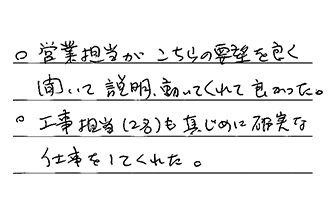 ○ 営業担当がこちらの要望を良く
聞いて説明、動いてくれて良かった。
○ 工事担当(2名)も真じめに確実な
仕事をしてくれた。